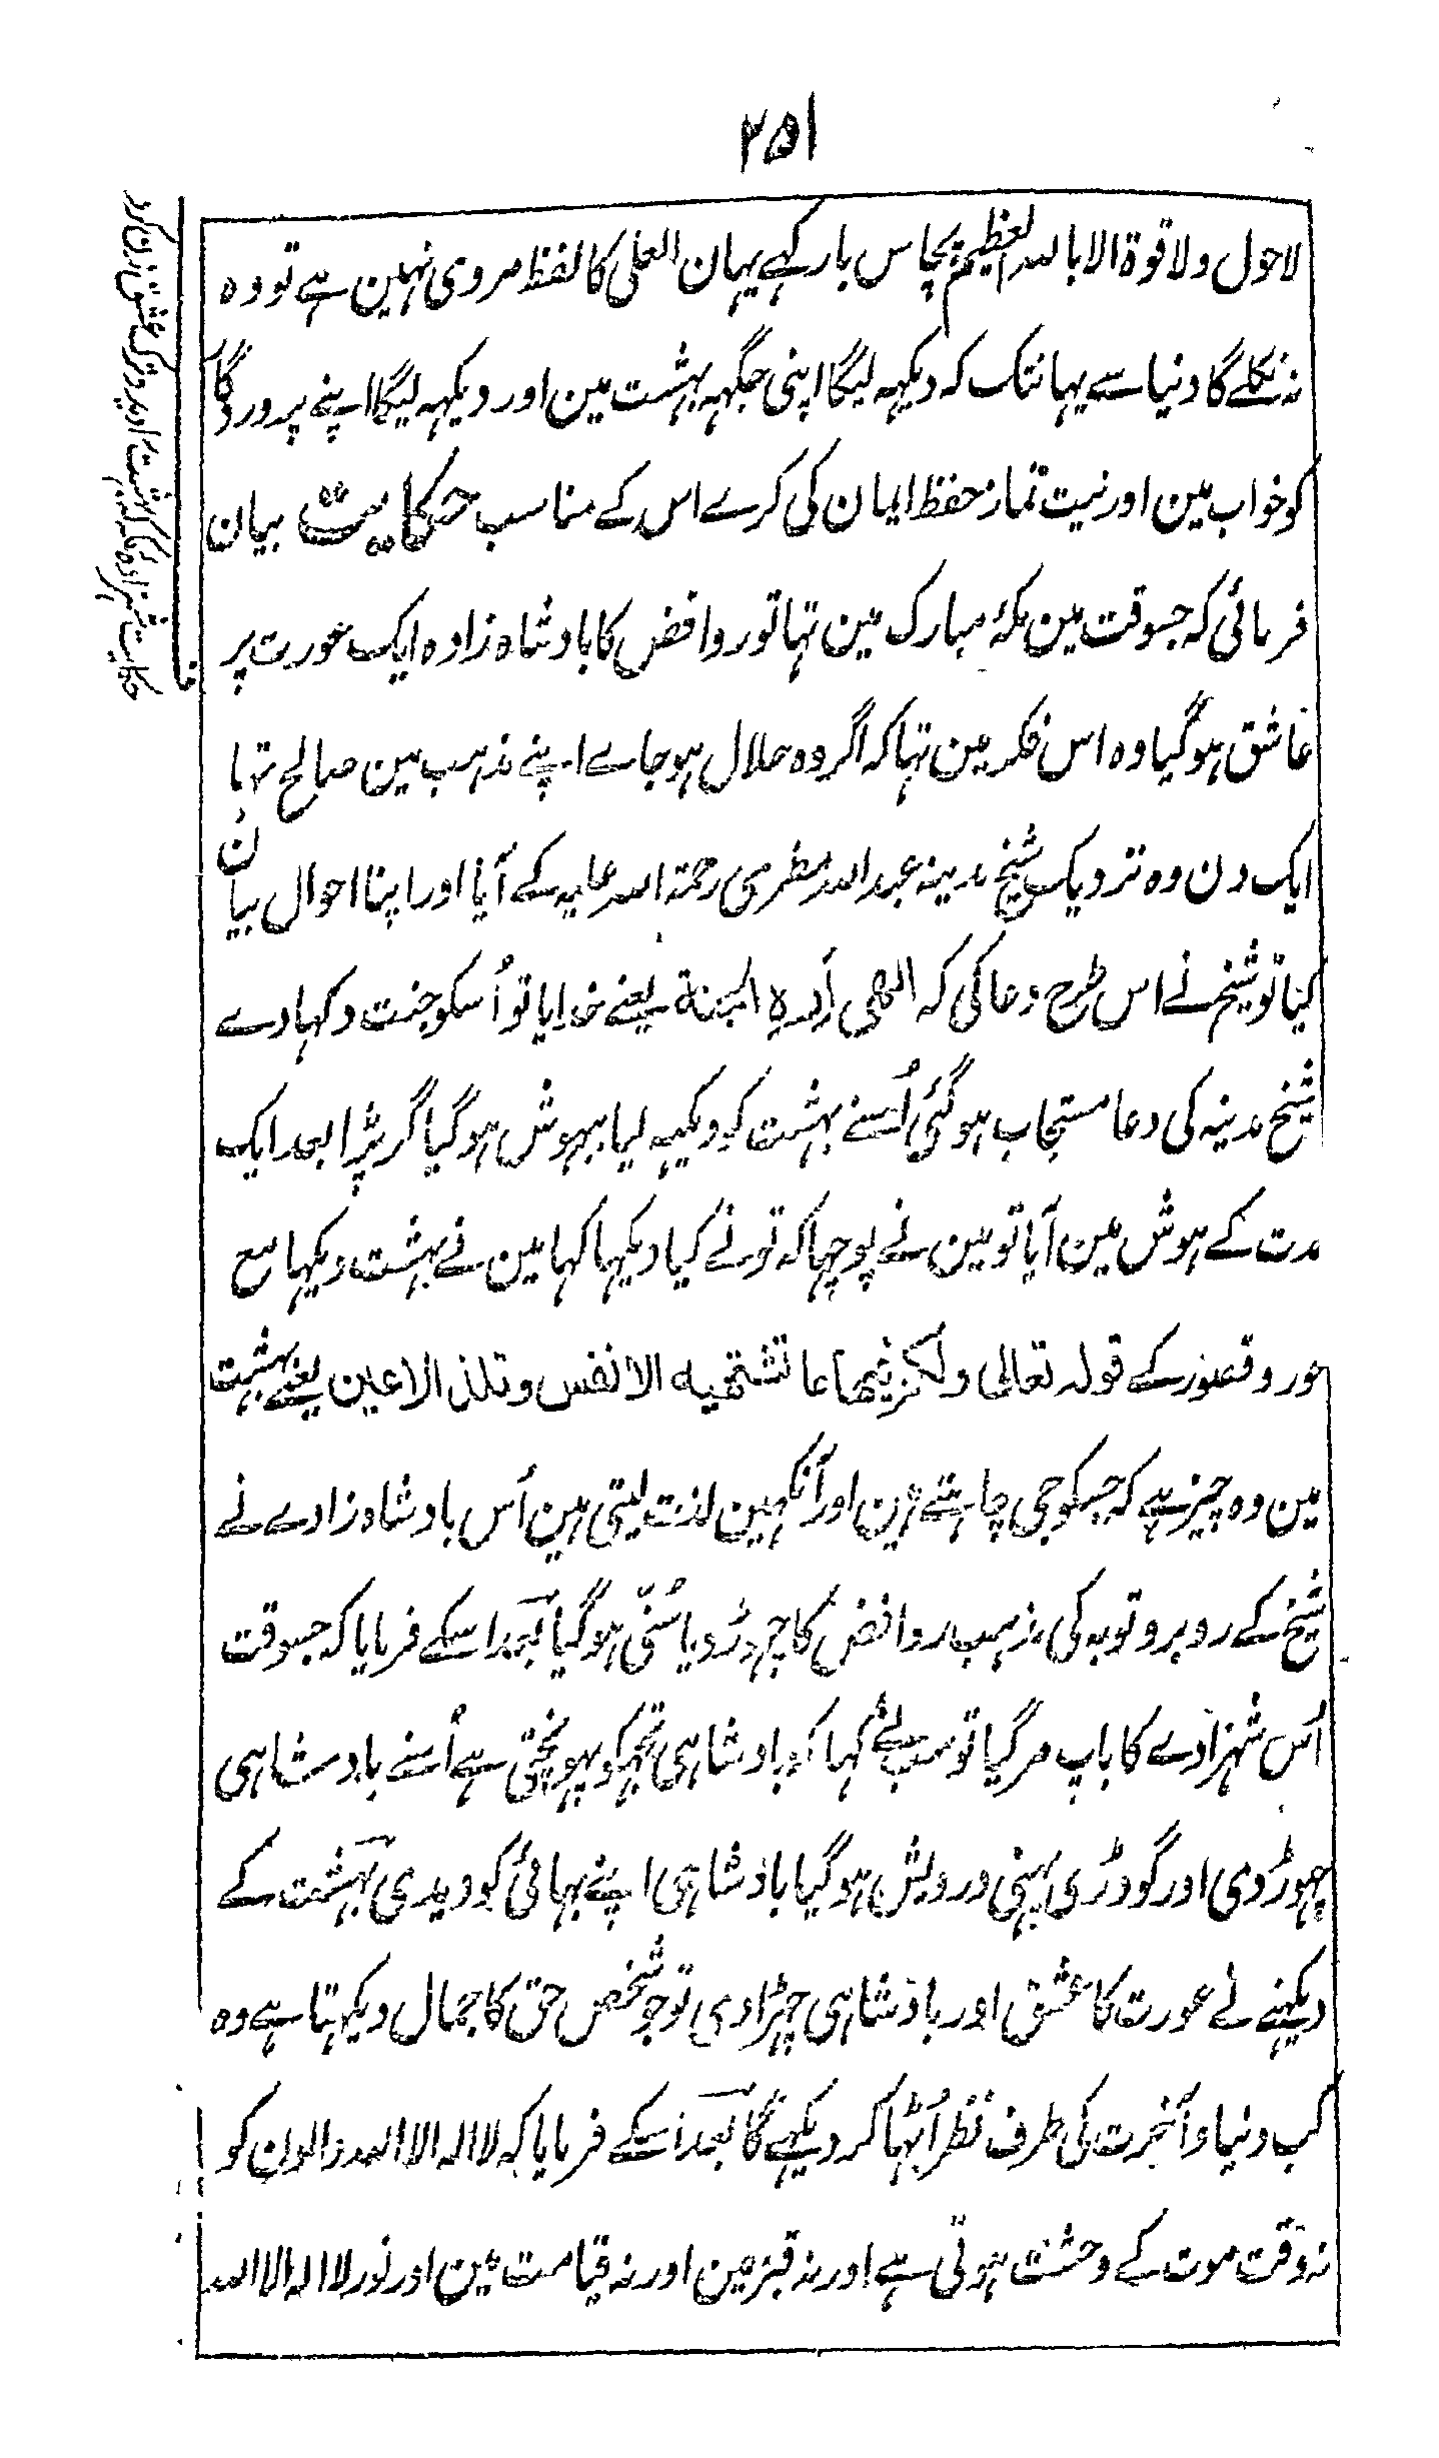 ۲۵۱
لاحول ولاقوۃ الا باللہ العظیم پچاس بار کہے یہان العلی کا لفظ مروی نہین ہے تو وہ
نہ نکلے گا دنیا سے یہانتک کہ دیکہہ لیگا اپنی جگہہ بہشت مین اور دیکہہ لیگا اپنے پروردگار
کو خواب مین اور نیت نماز حفظ ایمان کی کرے اس کے مناسب حکایت بیان
فرمائی کہ جسوقت مین مکۂ مبارک مین تہا تو روافض کا بادشاہ زادہ ایک عورت پر
عاشق ہوگیا وہ اس فکر مین تہا کہ اگر وہ حلال ہو جاے اپنے مذہب مین صالح تہا
ایک دن وہ نزدیک شیخ مدینہ عبد اللہ مطری رحمۃ اللہ علیہ کے آیا اور اپنا احوال بیان
کیا تو شیخ نے اس طرح دعا کی کہ الٰھی اَرِہِ الجنة یعنے خدایا تو اُسکو جنت دکہا دے
شیخ مدینہ کی دعا مستجاب ہوگئی اُسنے بہشت کو دیکہہ لیا بیہوش ہوگیا گر پڑا بعد ایک
مدت کے ہوش مین آیا تو مین نے پوچہا کہ تونے کیا دیکہا کہا مین نے بہشت دیکہا مع
حور و قصور کے قولہ تعالی ولکم فیھا ما تشتھیہ الانفس وتلذ الاعین یعنے بہشت
مین وہ چیز ہے کہ جسکو جی چاہتے ہین اور آنکہین لذت لیتی ہین اُس بادشاہ زادے نے
شیخ کے روبرو توبہ کی مذہب روافض کا چہوڑ دیا سُنّی ہوگیا بعد اسکے فرمایا کہ جسوقت
اُس شہزادے کا باپ مر گیا تو سب نے کہا کہ بادشاہی تجہکو پہونچتی ہے اُسنے بادشاہی
چہوڑ دی اور گودڑی پہنی درویش ہوگیا بادشاہی اپنے بہائی کو دیدی بہشت کے
دیکہنے نے عورت کا عشق اور بادشاہی چہڑا دی تو جو شخص حق کا جمال دیکہتا ہے وہ
کب دنیا و آخرت کی طرف نظر اُٹہا کر دیکہے گا بعد اسکے فرمایا کہ لا الہ الا اللہ والون کو
نہ وقت موت کے وحشت ہوتی ہے اور نہ قبر مین اور نہ قیامت مین اور نور لا الہ الا اللہ
حکایت شہزادہ کہ بہشت دید و ترک عشق زن کرد
ف